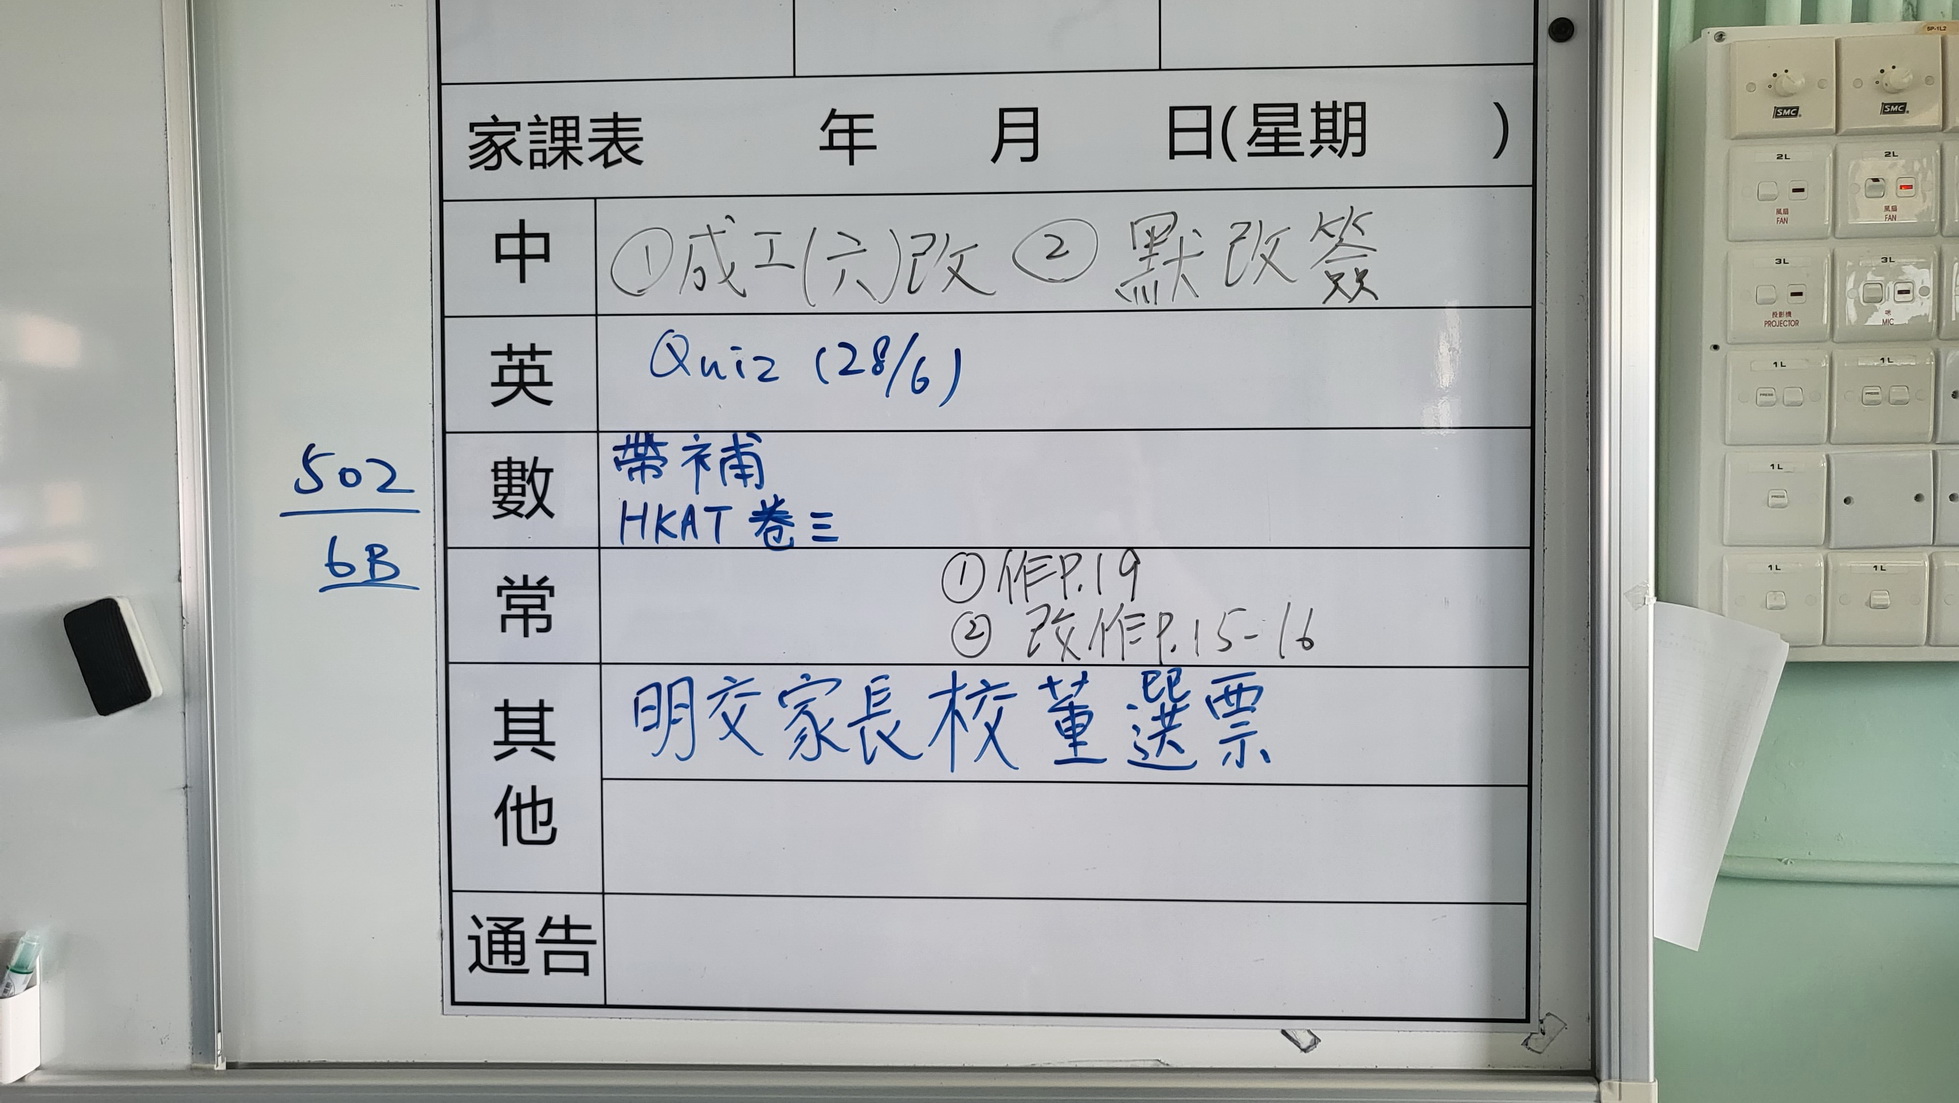 家課表 年 月 日(星期 )
中 ①成工(六)改 ② 默改簽
英 Quiz (28/6)
數 帶補
HKAT 卷三
502
6B
常 ①作P.19
② 改作P.15-16
其他 明交家長校董選票
通告
SMC
SMC
2L
2L
風扇
FAN
風扇
FAN
3L
3L
投影機
PROJECTOR
咪
MIC
1L
1L
1L
1L
1L